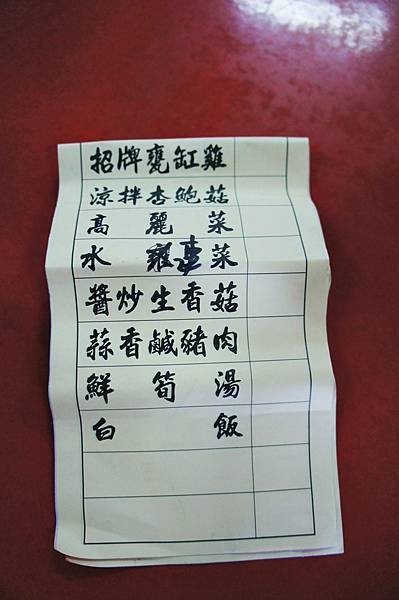 招牌甕缸雞
涼拌杏鮑菇
高麗菜
水蓮菜
醬炒生香菇
蒜香鹹豬肉
鮮筍湯
白飯